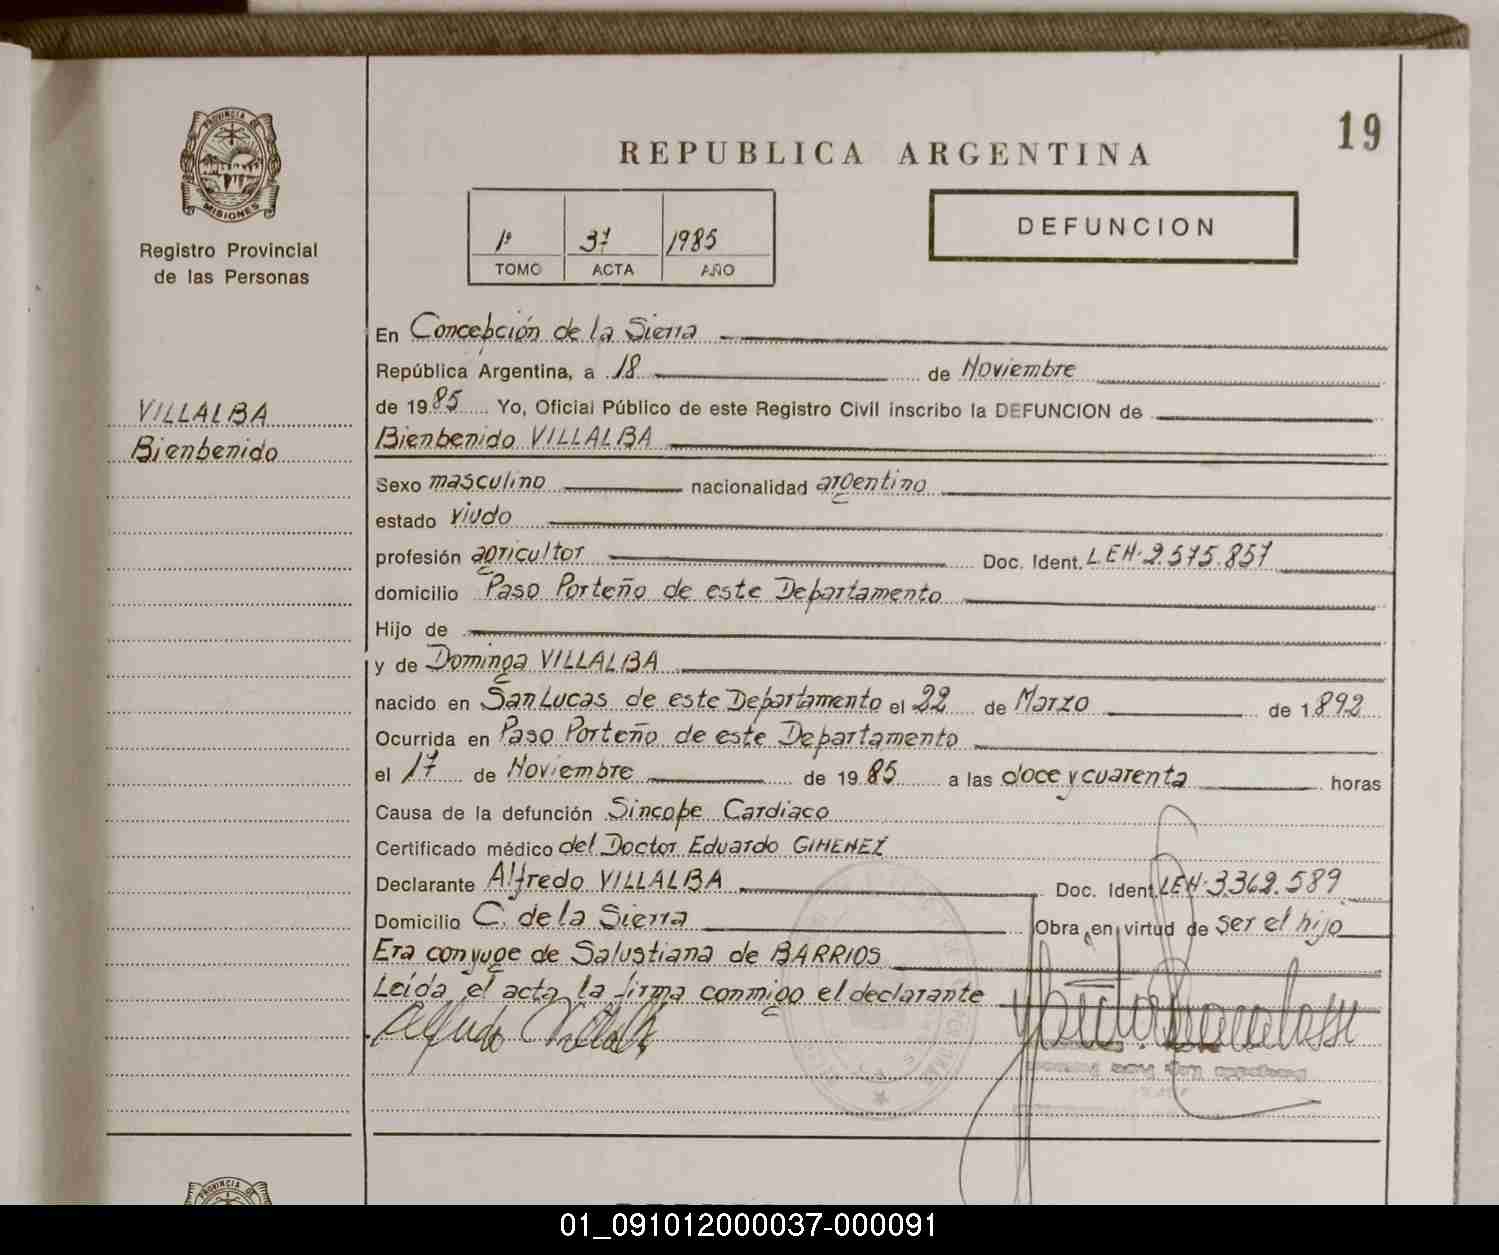 19
PROVINCIA DE
MISIONES
Registro Provincial
de las Personas
REPUBLICA ARGENTINA
1º 37 1985
TOMO ACTA AÑO
DEFUNCION
VILLALBA
Bienbenido
En Concepción de la Sierra
República Argentina, a 18 de Noviembre
de 1985 Yo, Oficial Público de este Registro Civil inscribo la DEFUNCION de
Bienbenido VILLALBA
Sexo masculino nacionalidad argentino
estado viudo
profesión agricultor Doc. Ident. LEN: 2.575.857
domicilio Paso Porteño de este Departamento
Hijo de
y de Dominga VILLALBA
nacido en San Lucas de este Departamento el 22 de Marzo de 1892
Ocurrida en Paso Porteño de este Departamento
el 17 de Noviembre de 1985 a las doce y cuarenta horas
Causa de la defunción Sincope Cardiaco
Certificado médico del Doctor Eduardo GIMENEZ
Declarante Alfredo VILLALBA Doc. Ident. LEN: 3.362.589
Domicilio C. de la Sierra Obra en virtud de ser el hijo
Era conyuge de Salustiana de BARRIOS
Leída el acta la firma conmigo el declarante
Alfredo Villalba
PROVINCIA DE
01_091012000037-000091